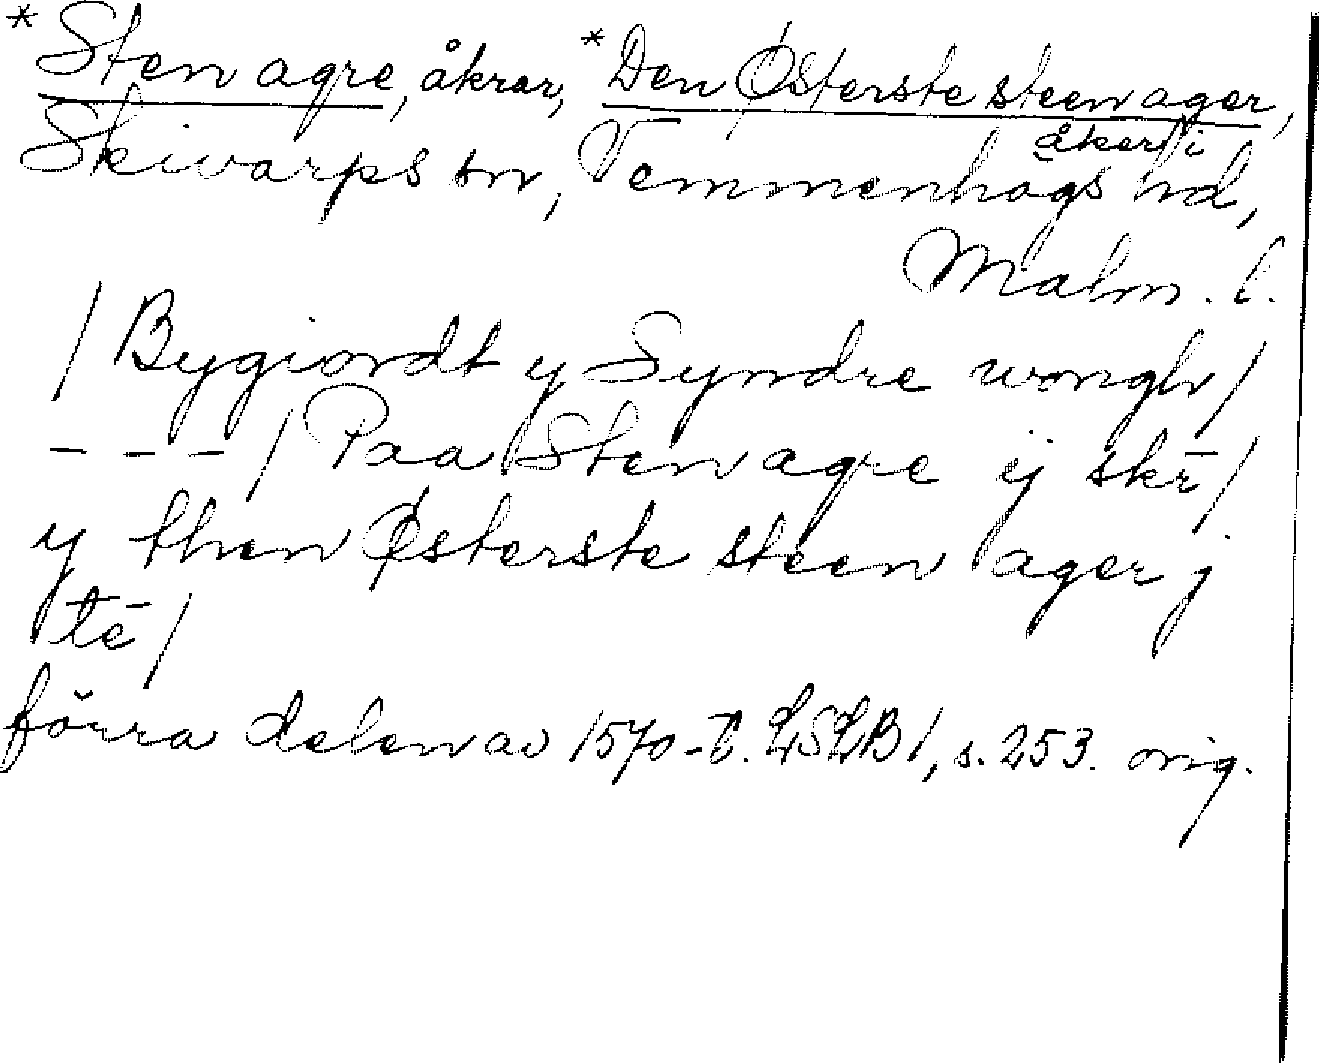 *Sten agre, åkrar, *Den Østerste steen ager,
åker, i
Skivarps sn, Vemmenhögs hd,
Malm. l.
/ Bygiordt y Syndre wongh /
- - - / Paa Sten agre ij skr̄ /
y then Østerste steen ager j
tē /
förra delen av 1570-t. LSLB 1, s. 253. orig.